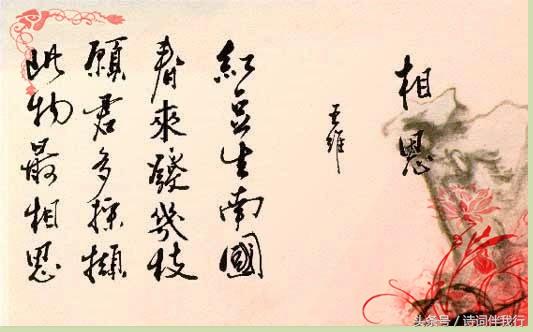 相思
王维
紅豆生南國
春來發幾枝
願君多採擷
此物最相思
头条号／诗词伴我行